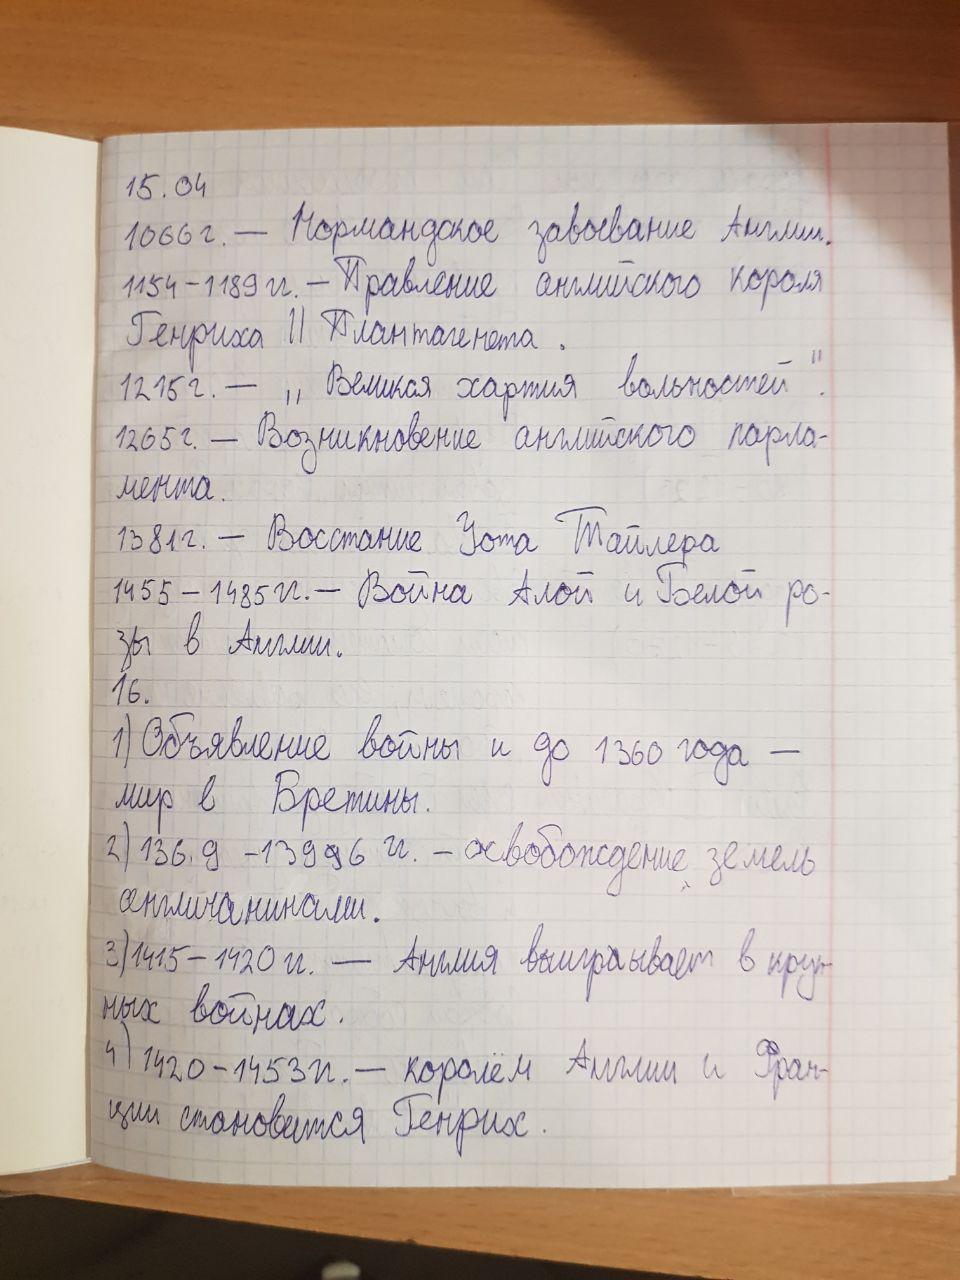 15.04
1066 г. — Нормандское завоевание Англии.
1154-1189 гг. — Правление английского короля
Генриха II Плантагенета.
1215 г. — „Великая хартия вольностей".
1265 г. — Возникновение английского парла-
мента.
1381 г. — Восстание Уота Тайлера
1455 – 1485 гг. — Война Алой и Белой ро-
зы в Англии.
16.
1) Объявление войны и до 1360 года —
мир в Бретины.
2) 1369 - 1396 гг. — освобождение земель
англичанинами.
3) 1415 – 1420 гг. — Англия выигрывает в круп-
ных войнах.
4) 1420 – 1453 гг. — королём Англии и Фран-
ции становится Генрих.